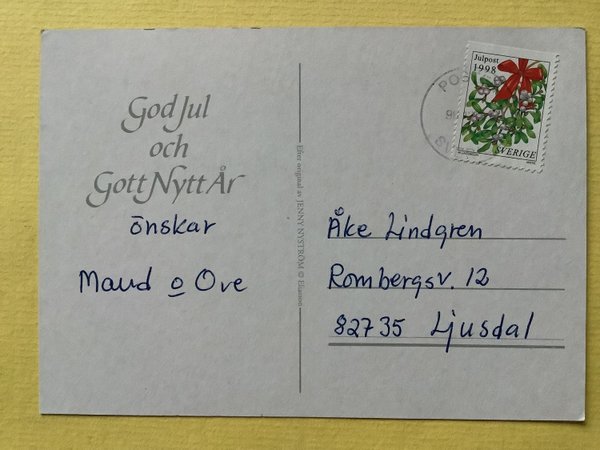 God Jul
och
Gott Nytt År
önskar
Maud o Ove
Efter original av JENNY NYSTRÖM © Eliasson
Julpost
1998
SVERIGE
POS
Åke Lindgren
Rombergsv. 12
82735 Ljusdal